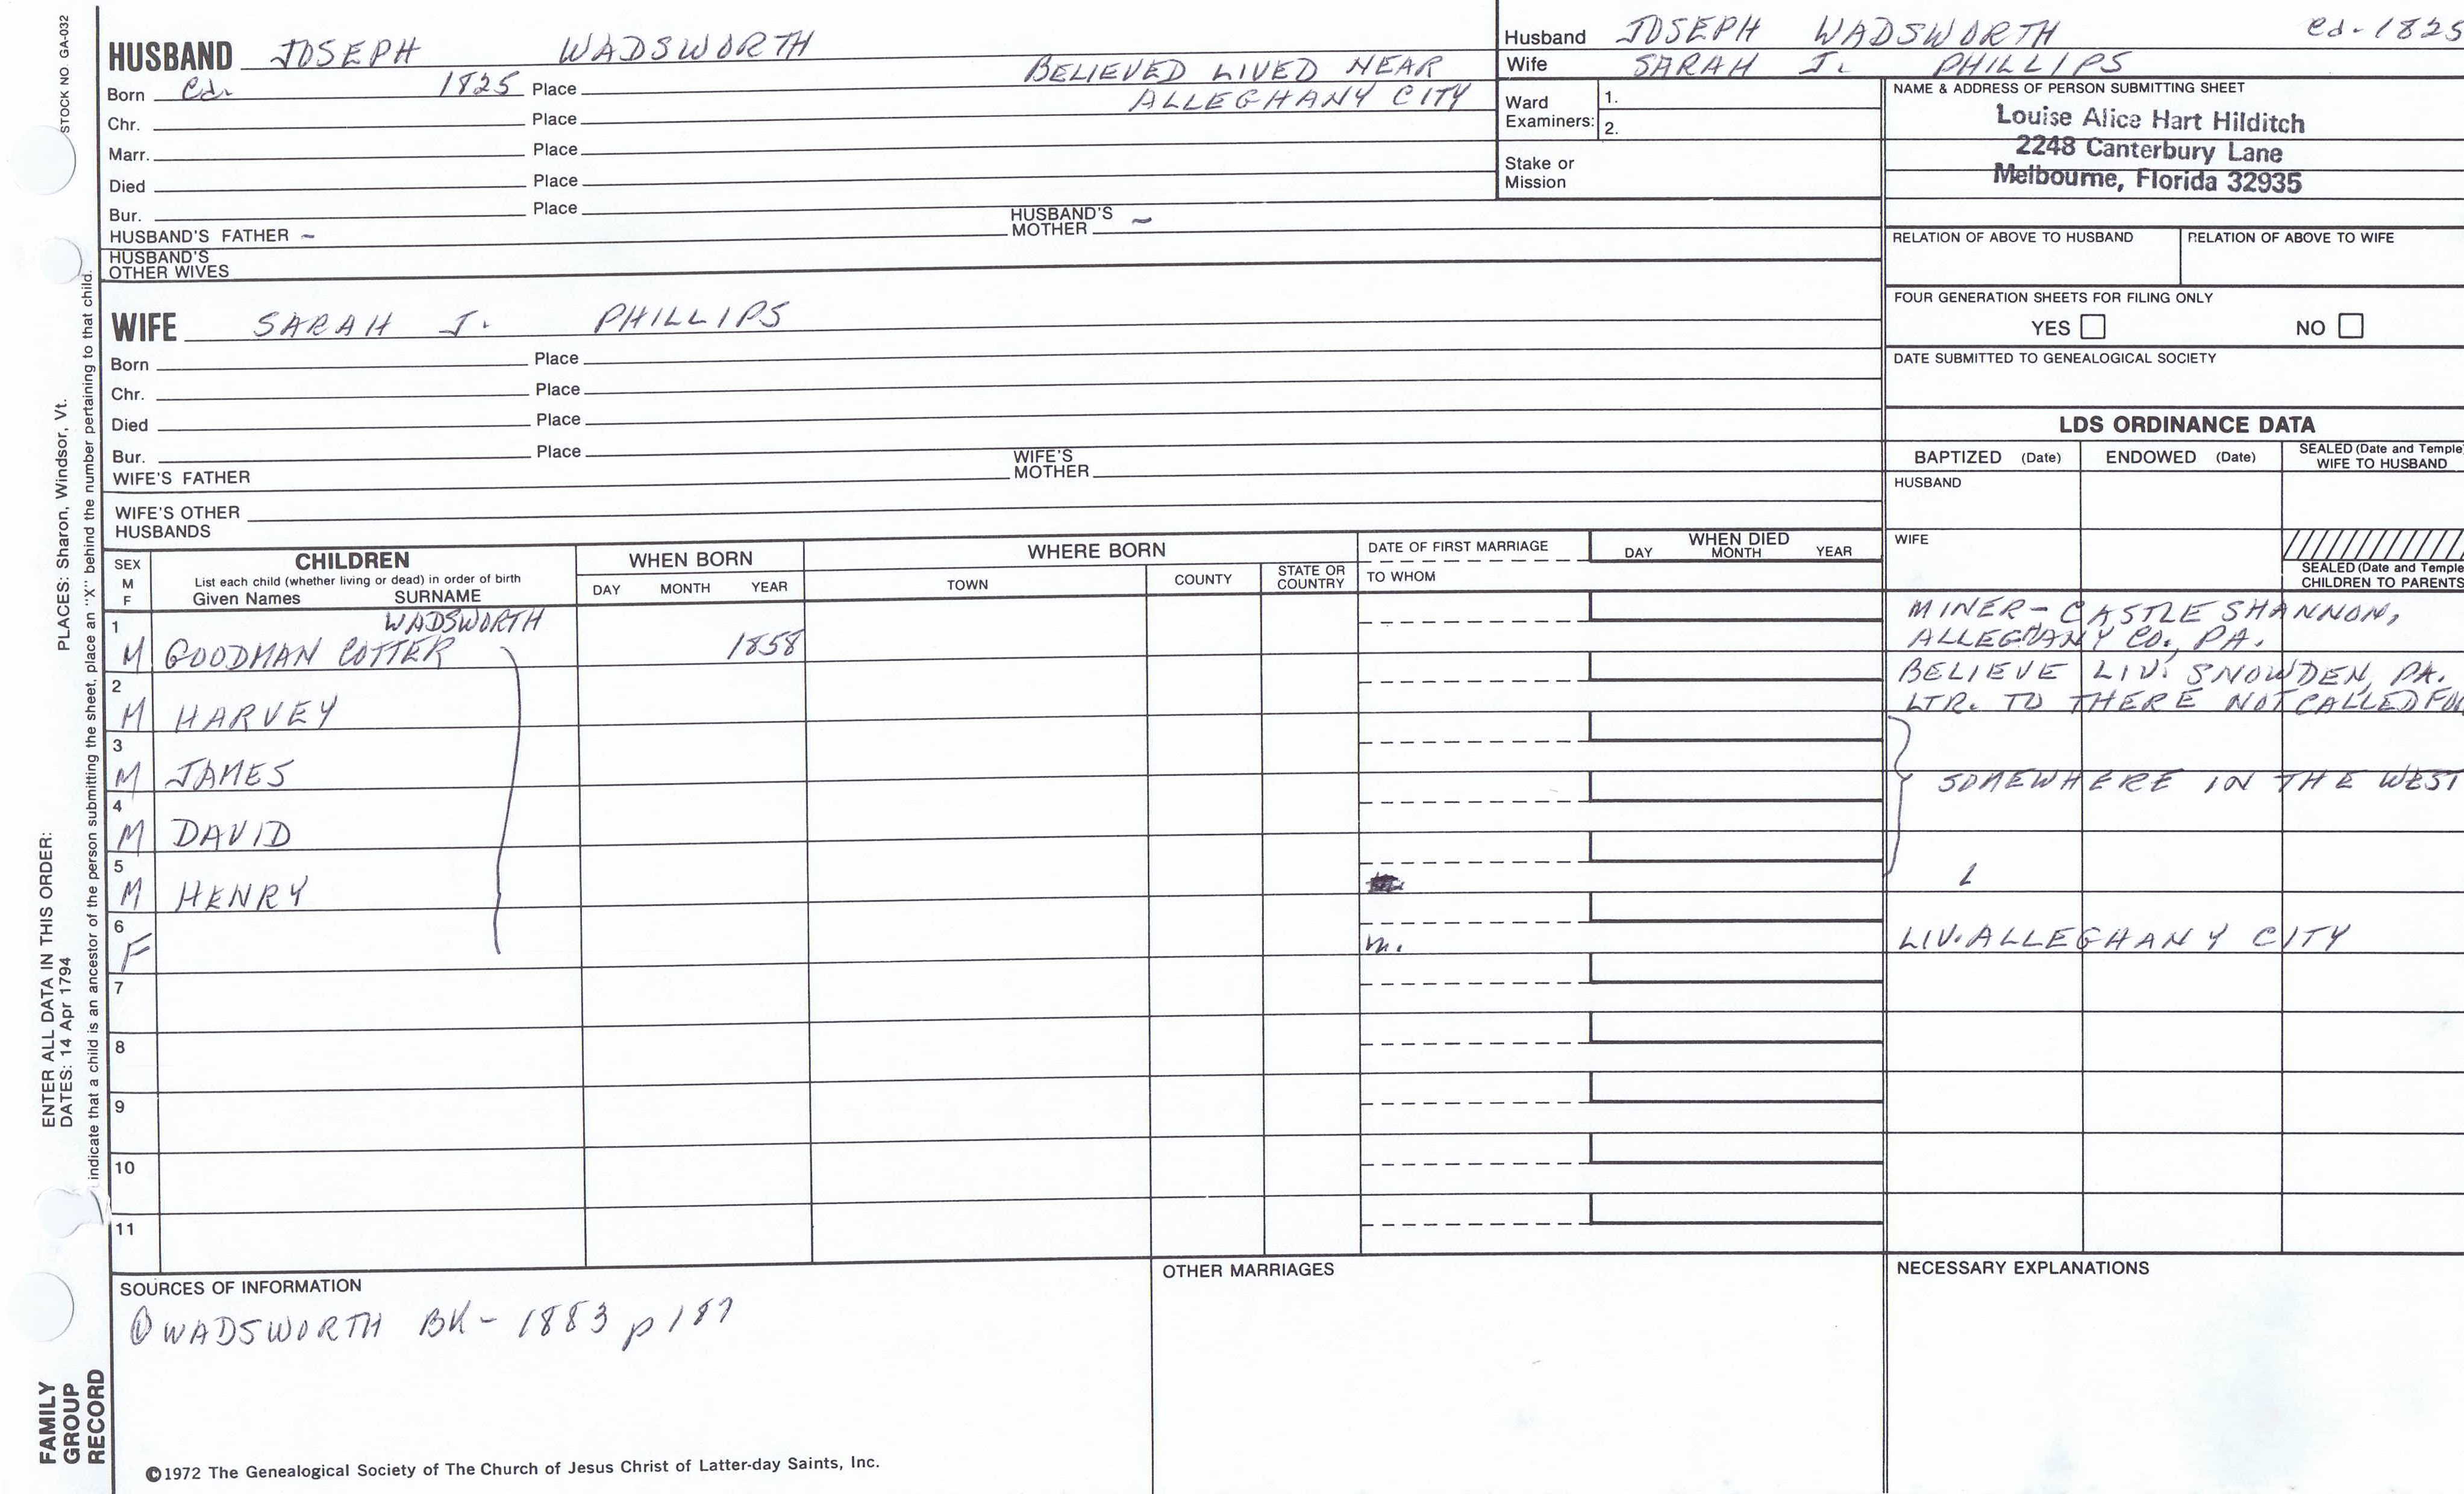 STOCK NO. GA-032
HUSBAND JOSEPH WADSWORTH
Born Cd. 1825 Place BELIEVED LIVED NEAR
ALLEGHANY CITY
Chr. Place
Marr. Place
Died Place
Bur. Place
HUSBAND'S FATHER – HUSBAND'S MOTHER –
HUSBAND'S
OTHER WIVES
Husband JOSEPH WADSWORTH Cd-1825
Wife SARAH J. PHILLIPS
Ward
Examiners:
1.
2.
Stake or
Mission
NAME & ADDRESS OF PERSON SUBMITTING SHEET
Louise Alice Hart Hilditch
2248 Canterbury Lane
Melbourne, Florida 32935
RELATION OF ABOVE TO HUSBAND RELATION OF ABOVE TO WIFE
FOUR GENERATION SHEETS FOR FILING ONLY
YES NO
DATE SUBMITTED TO GENEALOGICAL SOCIETY
WIFE SARAH J. PHILLIPS
Born Place
Chr. Place
Died Place
Bur. Place
WIFE'S FATHER WIFE'S MOTHER
WIFE'S OTHER
HUSBANDS
LDS ORDINANCE DATA
BAPTIZED (Date) ENDOWED (Date) SEALED (Date and Temple)
WIFE TO HUSBAND
HUSBAND
WIFE
SEALED (Date and Temple)
CHILDREN TO PARENTS
SEX
M
F
CHILDREN
List each child (whether living or dead) in order of birth
Given Names SURNAME
WHEN BORN
DAY MONTH YEAR
WHERE BORN
TOWN COUNTY STATE OR COUNTRY
DATE OF FIRST MARRIAGE
TO WHOM
WHEN DIED
DAY MONTH YEAR
1 WADSWORTH MINER – CASTLE SHANNON,
M GOODMAN COTTER 1858 ALLEGHANY CO., PA.
2 BELIEVE LIV. SNOWDEN, PA.
M HARVEY LTR. TO THERE NOT CALLED FOR
3
M JAMES SOMEWHERE IN THE WEST
4
M DAVID
5
M HENRY
6
F m. LIV. ALLEGHANY CITY
7
8
9
10
11
SOURCES OF INFORMATION
① WADSWORTH BK – 1883 p 187
OTHER MARRIAGES
NECESSARY EXPLANATIONS
©1972 The Genealogical Society of The Church of Jesus Christ of Latter-day Saints, Inc.
FAMILY
GROUP
RECORD
ENTER ALL DATA IN THIS ORDER:
DATES: 14 Apr 1794
PLACES: Sharon, Windsor, Vt.
indicate that a child is an ancestor of the person submitting the sheet, place an "X" behind the number pertaining to that child.